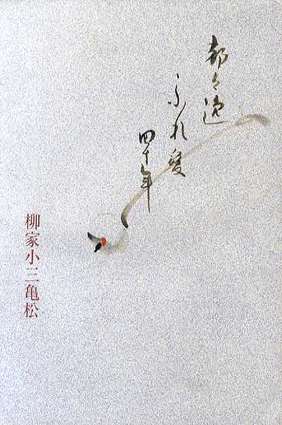 都々逸
ふれ愛
四十年
柳家小三亀松